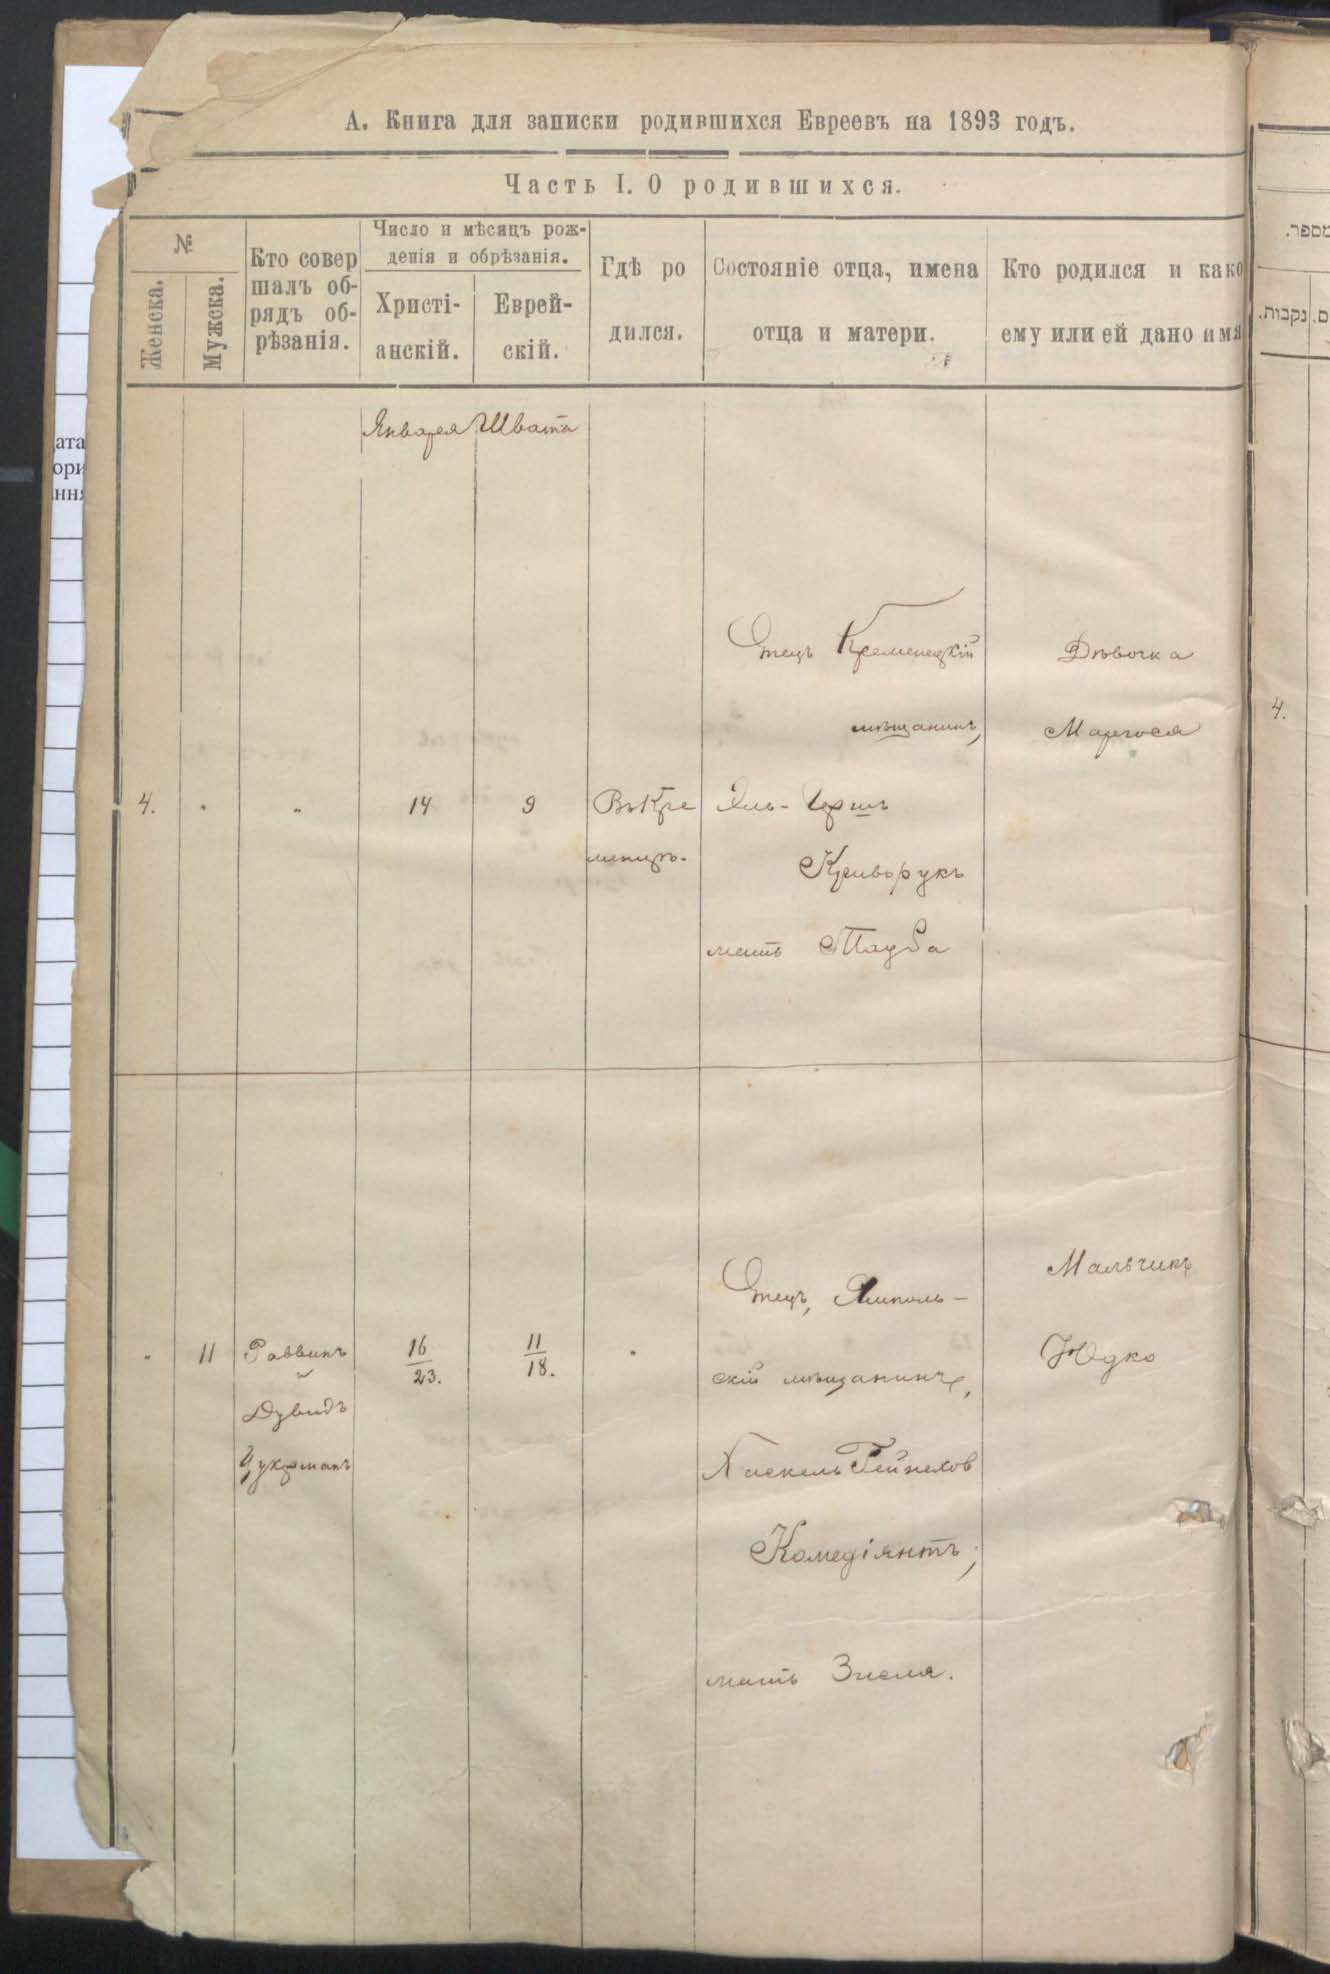 А. Книга для записки родившихся Евреевъ на 1893 годъ.
Часть I. О родившихся.
№
Женска.
Мужска.
Кто совер
шалъ об-
рядъ об-
рѣзанія.
Число и мѣсяцъ рож-
денія и обрѣзанія.
Христі-
анскій.
Еврей-
скій.
Гдѣ ро
дился.
Состояніе отца, имена
отца и матери.
Кто родился и како
ему или ей дано имя
Января Швата
4. " " 14 9
Въ Кре
менцѣ.
Отецъ Кременецкій
мѣщанинъ,
Герш
Криворукъ
мать Тауба
Дѣвочка
" 11
Раввинъ
и
Дувидъ
Цукерманъ
16
23.
11
18.
"
Отецъ, Ямполь-
скій мѣщанинъ,
Хаскель Гейнехов
Комедіянтъ,
мать Зисля.
Мальчикъ
Юдко
מספר.
נקבות.
4.
ата
ори
ння